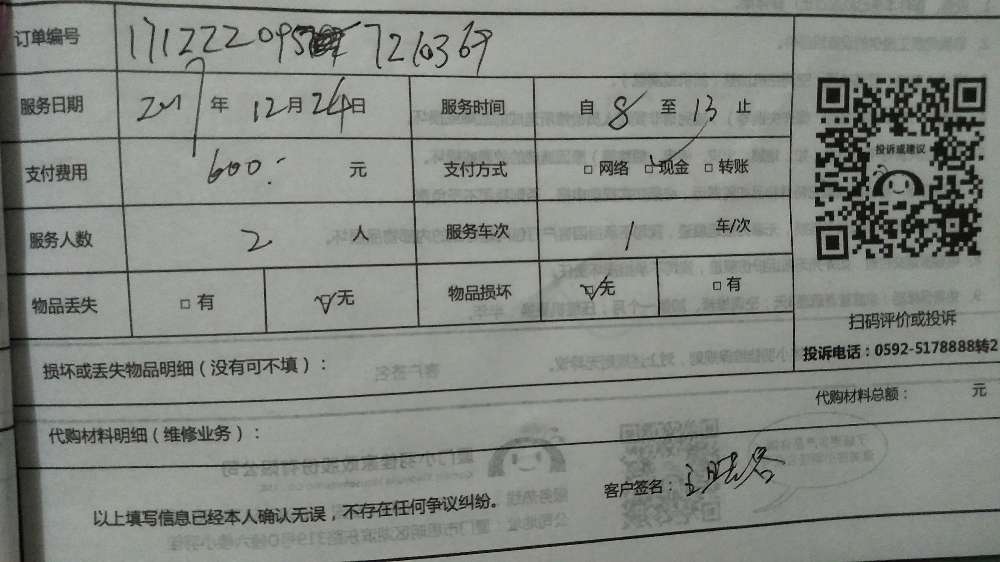 订单编号 171222095 7210369
服务日期 2017年12月24日 服务时间 自8至13止
支付费用 600: 元 支付方式 □网络 ☑现金 □转账
投诉或建议
服务人数 2 人 服务车次 1 车/次
物品丢失 □有 ☑无 物品损坏 ☑无 □有
扫码评价或投诉
投诉电话：0592-5178888转2
损坏或丢失物品明细（没有可不填）：
代购材料总额： 元
代购材料明细（维修业务）：
客户签名：
以上填写信息已经本人确认无误，不存在任何争议纠纷。